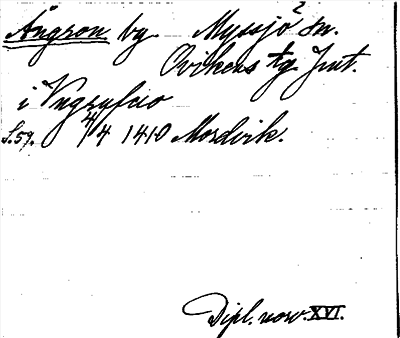 Ångron by. Myssjö sn. 2
Ovikens tg. Jmt.
i Yngruscio
S. 59. 4/4 1410 Mordvik.
Dipl. norv. XVI.